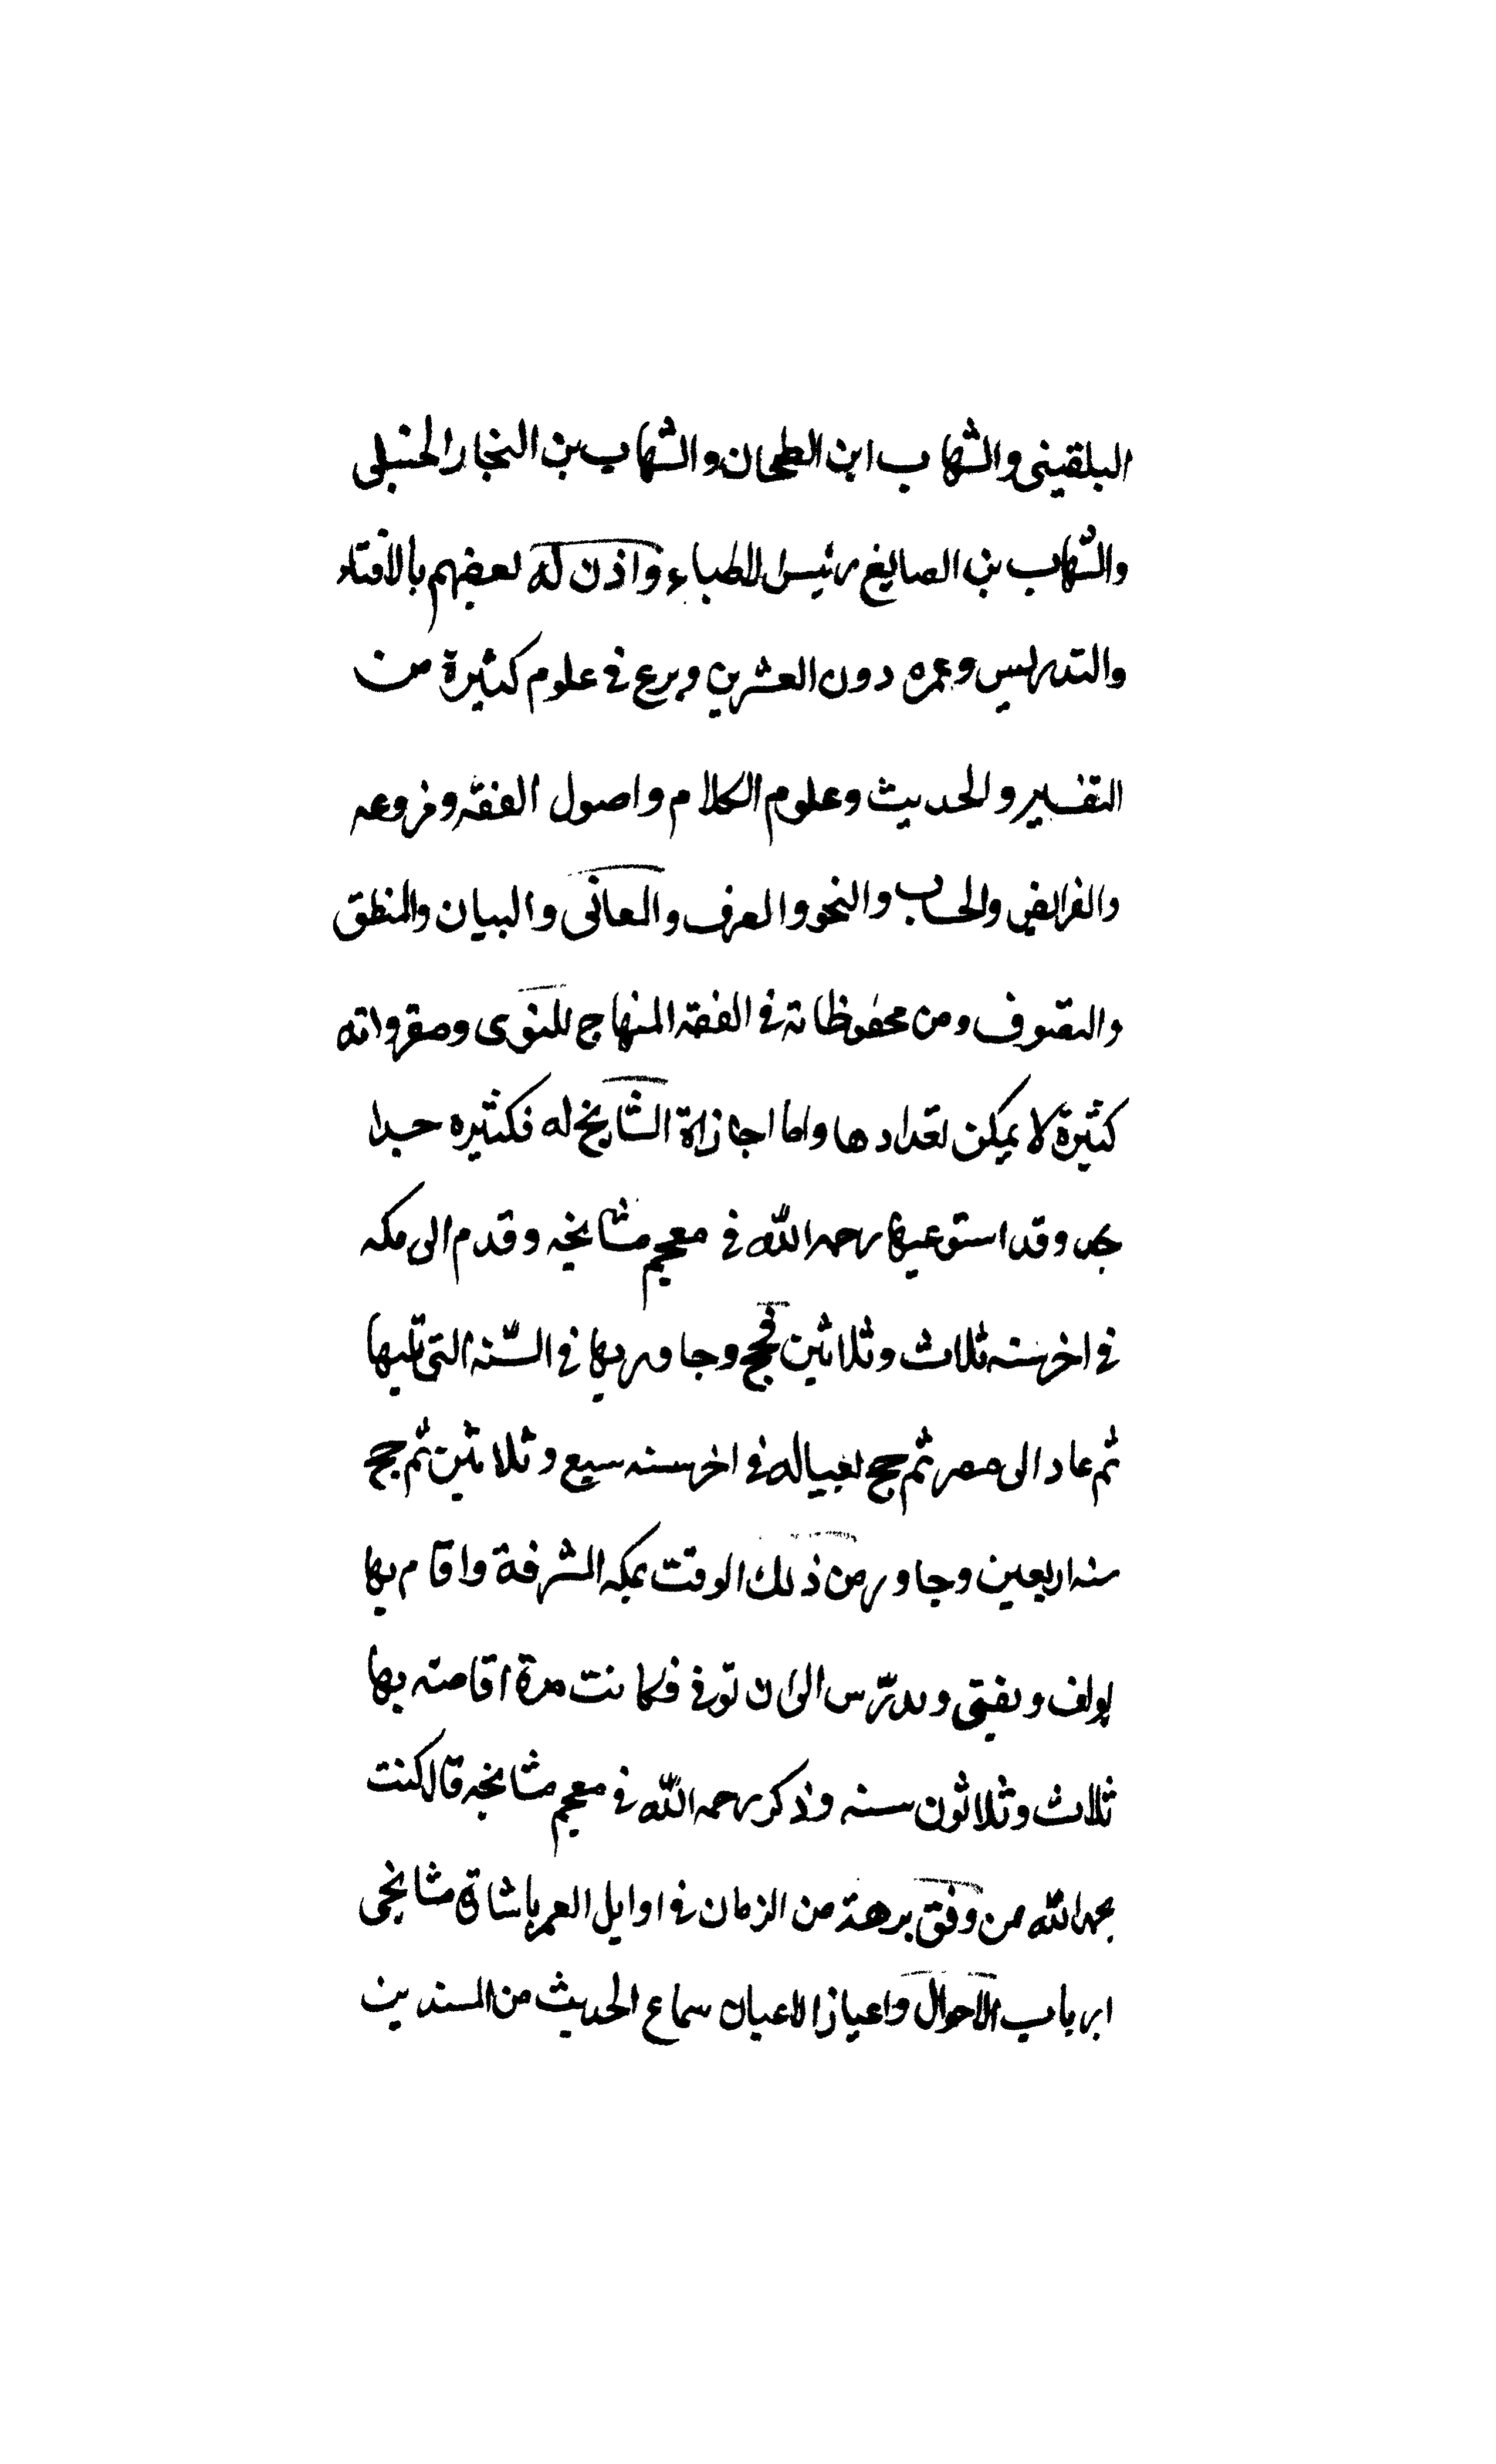 البلقينى والشهاب ابن الطحان والشهاب بن النجار الحنبلى
والشهاب بن الصايغ رئيس الاطباء واذن له بعضهم بالافتاء
والتدريس وعمره دون العشرين وبرع في علوم كثيرة من
التفسير والحديث وعلوم الكلام واصول الفقه وفروعه
والفرايض والحساب والنحو والصرف والمعانى والبيان والمنطق
والتصوف ومن محفوظاته في الفقه المنهاج للنووى ومقرواته
كثيرة لا يمكن تعدادها واما اجازاة المشايخ له فكثيره جدا
جدا وقد استوعبها رحمه الله في معجم مشايخه وقدم الى مكه
في اخر سنه ثلاث وثلاثين فحج وجاور بها في السّنه التى تليها
ثم عاد الى مصر ثم حج بعياله في اخر سنه سبع وثلاثين ثم حج
سنه اربعين وجاور من ذلك الوقت بمكه المشرفة واقام بها
يولف ويفتى ويدرّس الى ان توفى فكانت مدة اقامته بها
ثلاث وثلاثون سنه وذكر رحمه الله في معجم مشايخه قال كنت
بحمد الله ممن وفق برهة من الزمان في اوايل العمر باشاة مشايخى
ارباب الاحوال واعيان الاعيان سماع الحديث من المسندين